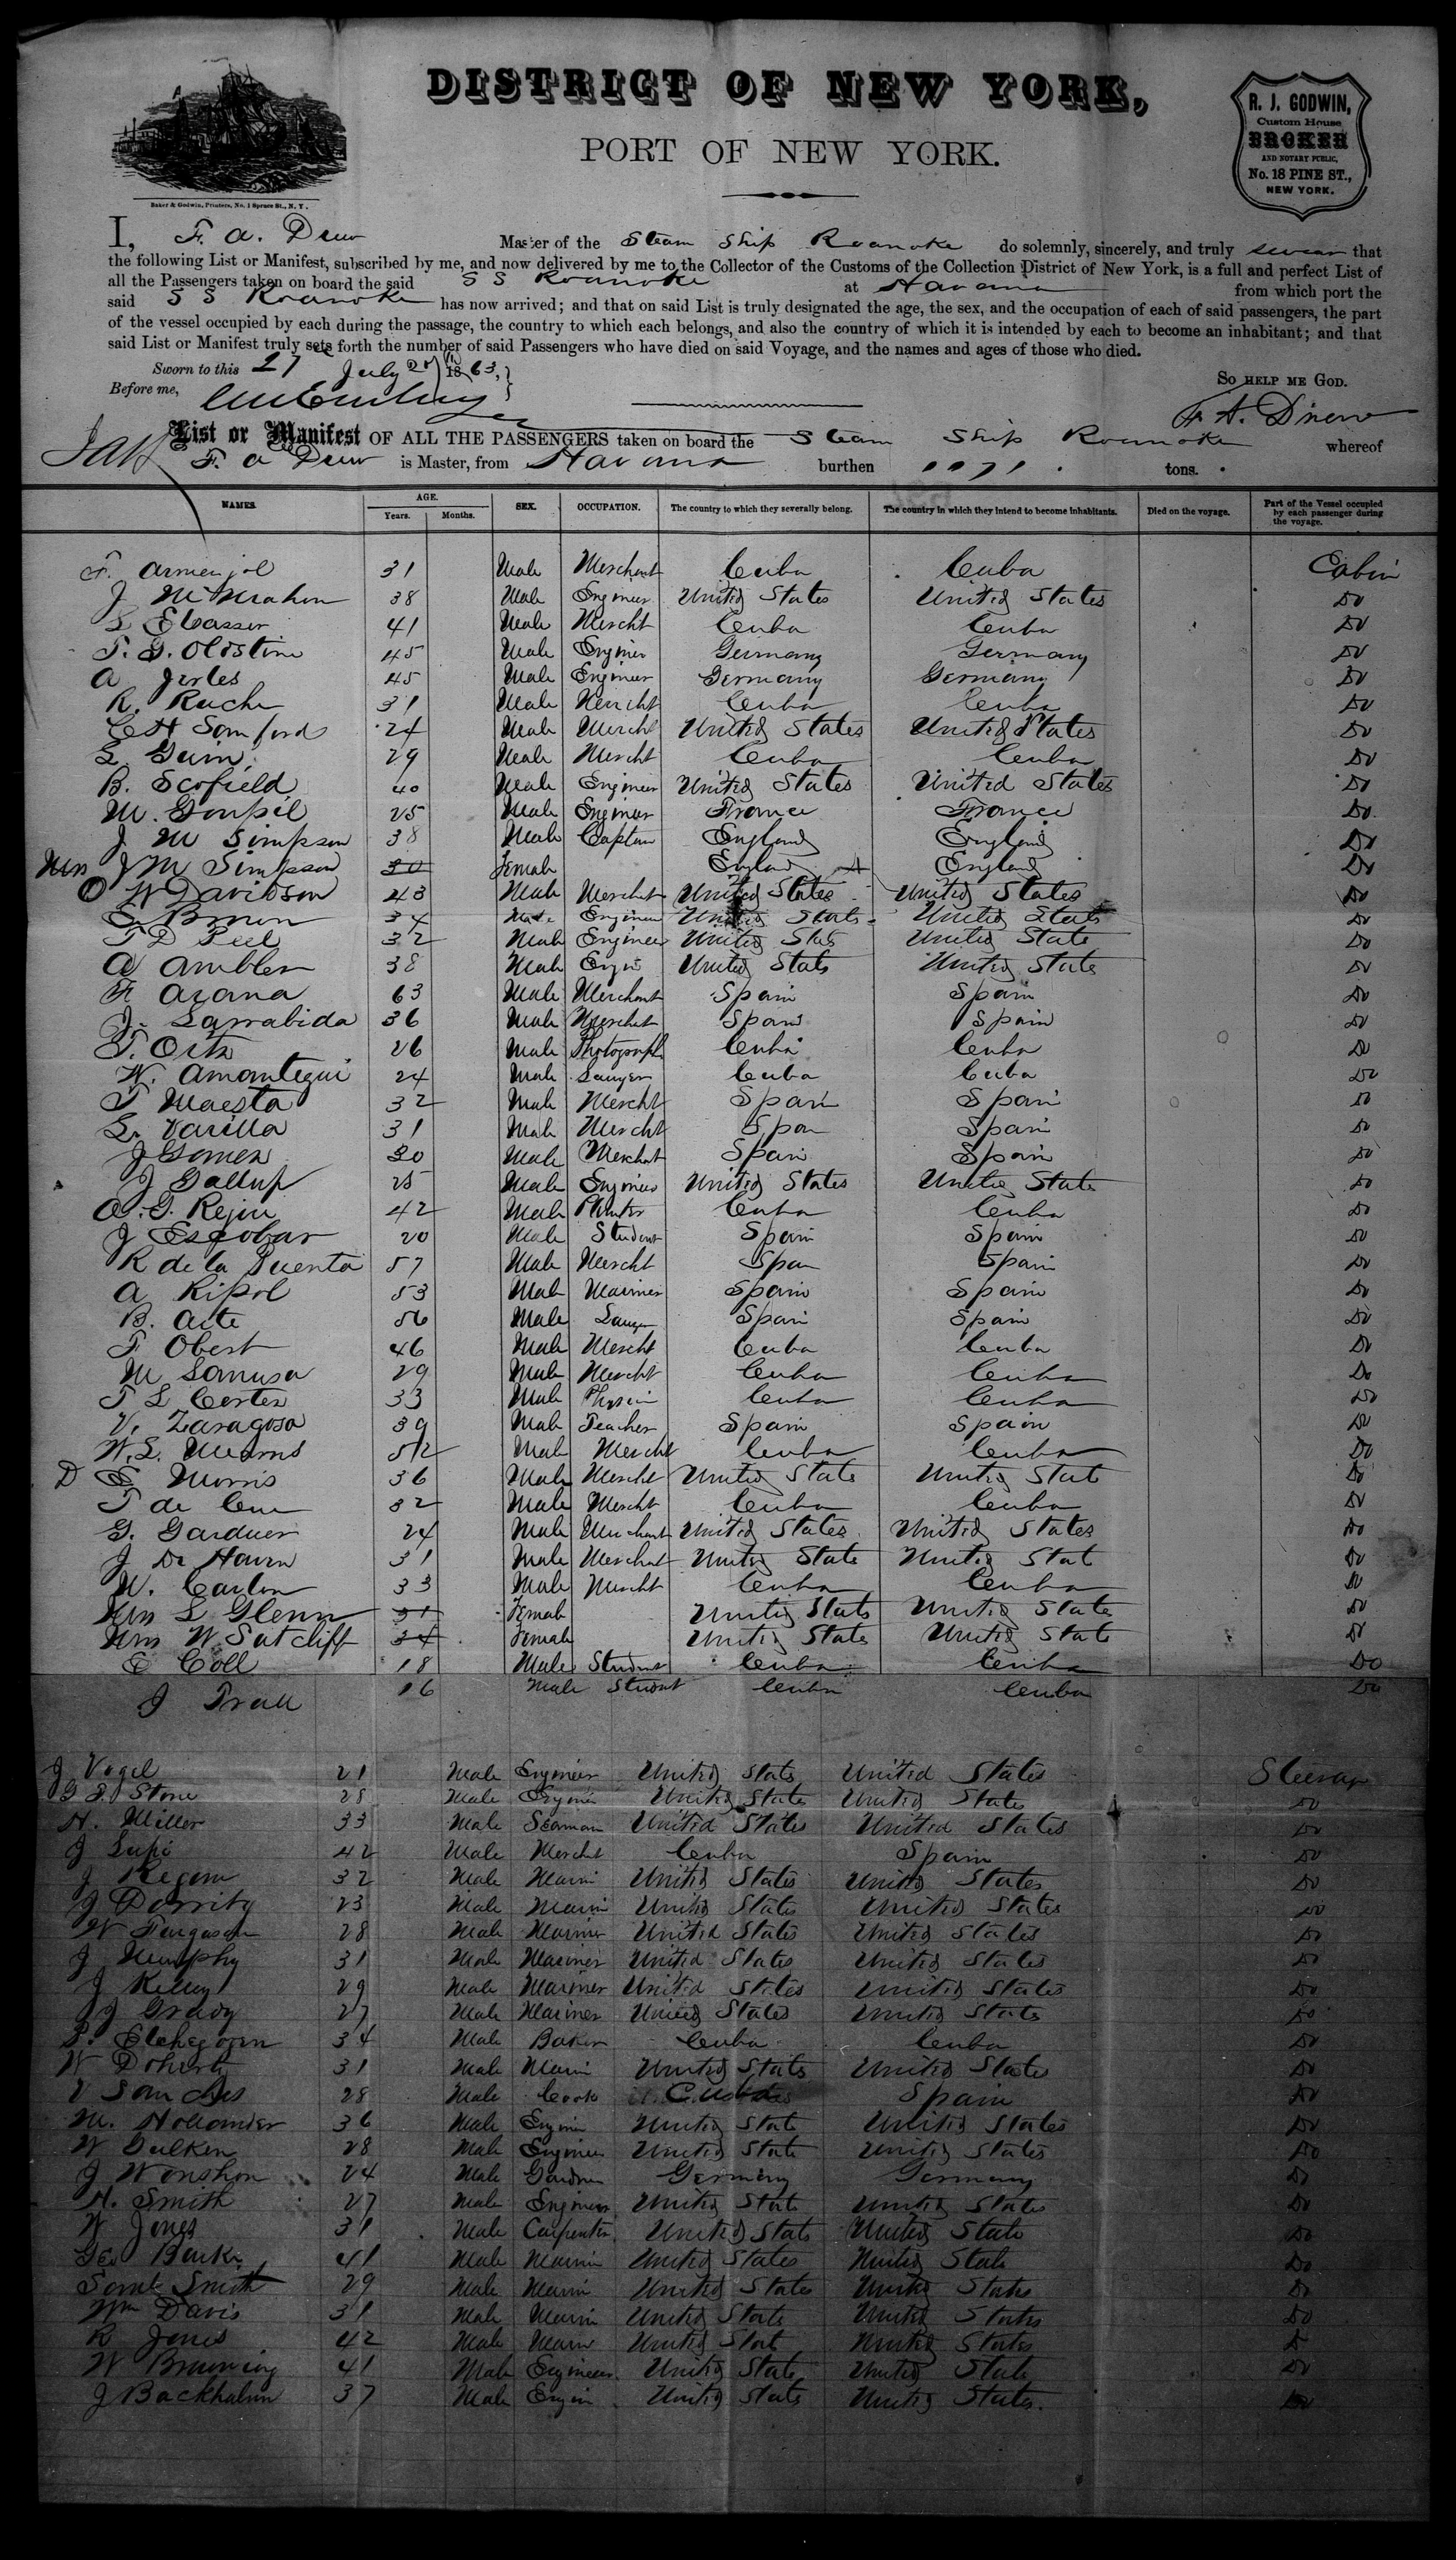 DISTRICT OF NEW YORK,
PORT OF NEW YORK.
Baker & Godwin, Printers, No. 1 Spruce St., N. Y.
R. J. GODWIN,
Custom House
BROKER
AND NOTARY PUBLIC,
No. 18 PINE ST.,
NEW YORK.
I, F. A. Drew Master of the Steam Ship Roanoke do solemnly, sincerely, and truly swear that
the following List or Manifest, subscribed by me, and now delivered by me to the Collector of the Customs of the Collection District of New York, is a full and perfect List of
all the Passengers taken on board the said S S Roanoke at Havana from which port the
said S S Roanoke has now arrived; and that on said List is truly designated the age, the sex, and the occupation of each of said passengers, the part
of the vessel occupied by each during the passage, the country to which each belongs, and also the country of which it is intended by each to become an inhabitant; and that
said List or Manifest truly sets forth the number of said Passengers who have died on said Voyage, and the names and ages of those who died.
Sworn to this 27 July 1863,
Before me,
SO HELP ME GOD.
F. A. Drew
List or Manifest OF ALL THE PASSENGERS taken on board the Steam Ship Roanoke whereof
F. A Drew is Master, from Havana burthen 1071 tons.
NAMES. AGE. Years. Months. SEX. OCCUPATION. The country to which they severally belong. The country in which they intend to become inhabitants. Died on the voyage. Part of the Vessel occupied by each passenger during the voyage.
F. Armenjol 31 Male Merchant Cuba Cuba Cabin
J McMahon 38 Male Engineer United States United States Do
41 Male Mercht Cuba Cuba Do
45 Male Engineer Germany Germany Do
A 45 Male Engineer Germany Germany Do
R. 31 Male Mercht Cuba Cuba Do
C H Samfords 24 Male Mercht United States United States Do
29 Male Mercht Cuba Cuba Do
B. Scofield 40 Male Engineer United States United States Do
M. Goupil 25 Male Engineer France France Do
J M Simpson 38 Male Captain England England Do
Mrs J M Simpson 30 Female England England Do
O W Davidson 43 Male Merchant United States United States Do
34 Male Engineer United States United States Do
T D Peel 32 Male Engineer United Stats United State Do
A Ambler 38 Male United Stats United State Do
F Arana 63 Male Merchant Spain Spain Do
J. Larrabida 36 Male Merchat Spain Spain Do
T. Ortz 26 Male Photograph Cuba Cuba Do
N. Amontegui 24 Male Lawyer Cuba Cuba Do
T Maesta 32 Male Mercht Spain Spain Do
L. Varilla 31 Male Mercht Span Spain Do
J Gomez 30 Male Merchat Spain Spain Do
J Gallup 25 Male Engineer United States United State Do
A. G. 42 Male Planter Cuba Cuba Do
J Escobar 20 Male Student Spain Spain Do
R de la Puenta 57 Male Mercht Span Spain Do
A Ripol 53 Male Mariner Spain Spain Do
B. Arte 56 Male Spain Spain Do
F Obert 46 Male Mercht Cuba Cuba Do
M Lanusa 29 Male Mercht Cuba Cuba Do
T L Cortes 33 Male Cuba Cuba Do
V. Zaragosa 39 Male Teacher Spain Spain Do
W. L. Mearns 52 Male Mercht Cuba Cuba Do
D E Morris 36 Male Mercht United State United State Do
T de 32 Male Mercht Cuba Cuba Do
G. Gardner 24 Male Merchant United States United States Do
J De Haven 31 Male Merchat United State United Stat Do
W. Carlon 33 Male Mercht Cuba Cuba Do
Mrs L Glenn 31 Female United Stats United State Do
Mrs W Sutcliff 34 Female United State United State Do
E Coll 18 Male Student Cuba Cuba Do
J 16 Male Student Cuba Cuba Do
J Vogel 21 Male Engineer United Stats United States Steerage
G F. Stone 28 Male Engineer United State United State Do
H. Miller 33 Male Seaman United States United States Do
J Lupi 42 Male Merchat Cuba Spain Do
J 32 Male United States United States Do
J Dorrity 23 Male United States United States Do
W Ferguson 28 Male Mariner United States United States Do
J Murphy 31 Male Mariner United States United States Do
J Kelley 29 Male Mariner United States United States Do
J Grady 27 Male Mariner United States United States Do
34 Male Baker Cuba Cuba Do
W Doherty 31 Male United States United States Do
V Sanches 28 Male Cook Cuba Spain Do
M. 36 Male United State United States Do
W 28 Male Engineer United State United States Do
J 24 Male Gardner Germany Germany Do
H. Smith 27 Male Engineer United State United States Do
W Jones 31 Male Carpenter United State United State Do
Geo Burke 41 Male United States United State Do
Saml Smith 29 Male United States United States Do
Wm Davis 31 Male United State United States Do
R Jones 42 Male United Stat United States Do
W Browning 41 Male Engineer United State United State Do
J Backhalm 37 Male United Stats United States. Do